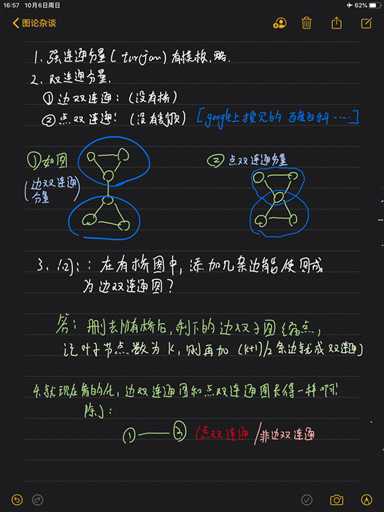 16:57 10月6日周日
62%
图论杂谈
1. 强连通分量 (tarjan) 有模板, 略.
2. 双连通分量.
① 边双连通: (没有桥)
② 点双连通: (没有割顶) [google上搜见的 百度百科 ......]
① 如图
(边双连通分量
② 点双连通分量
3. 问: : 在有桥图中, 添加几条边能使图成
为边双连通图?
答: 删去所有桥后, 剩下的边双子图缩点,
设叶子节点数为 k, 则再加 (k+1)/2 条边就成双连通
4. 就现在看的化, 边双连通图和点双连通图长得一样啊!
除了:
① ② (点双连通 / 非边双连通